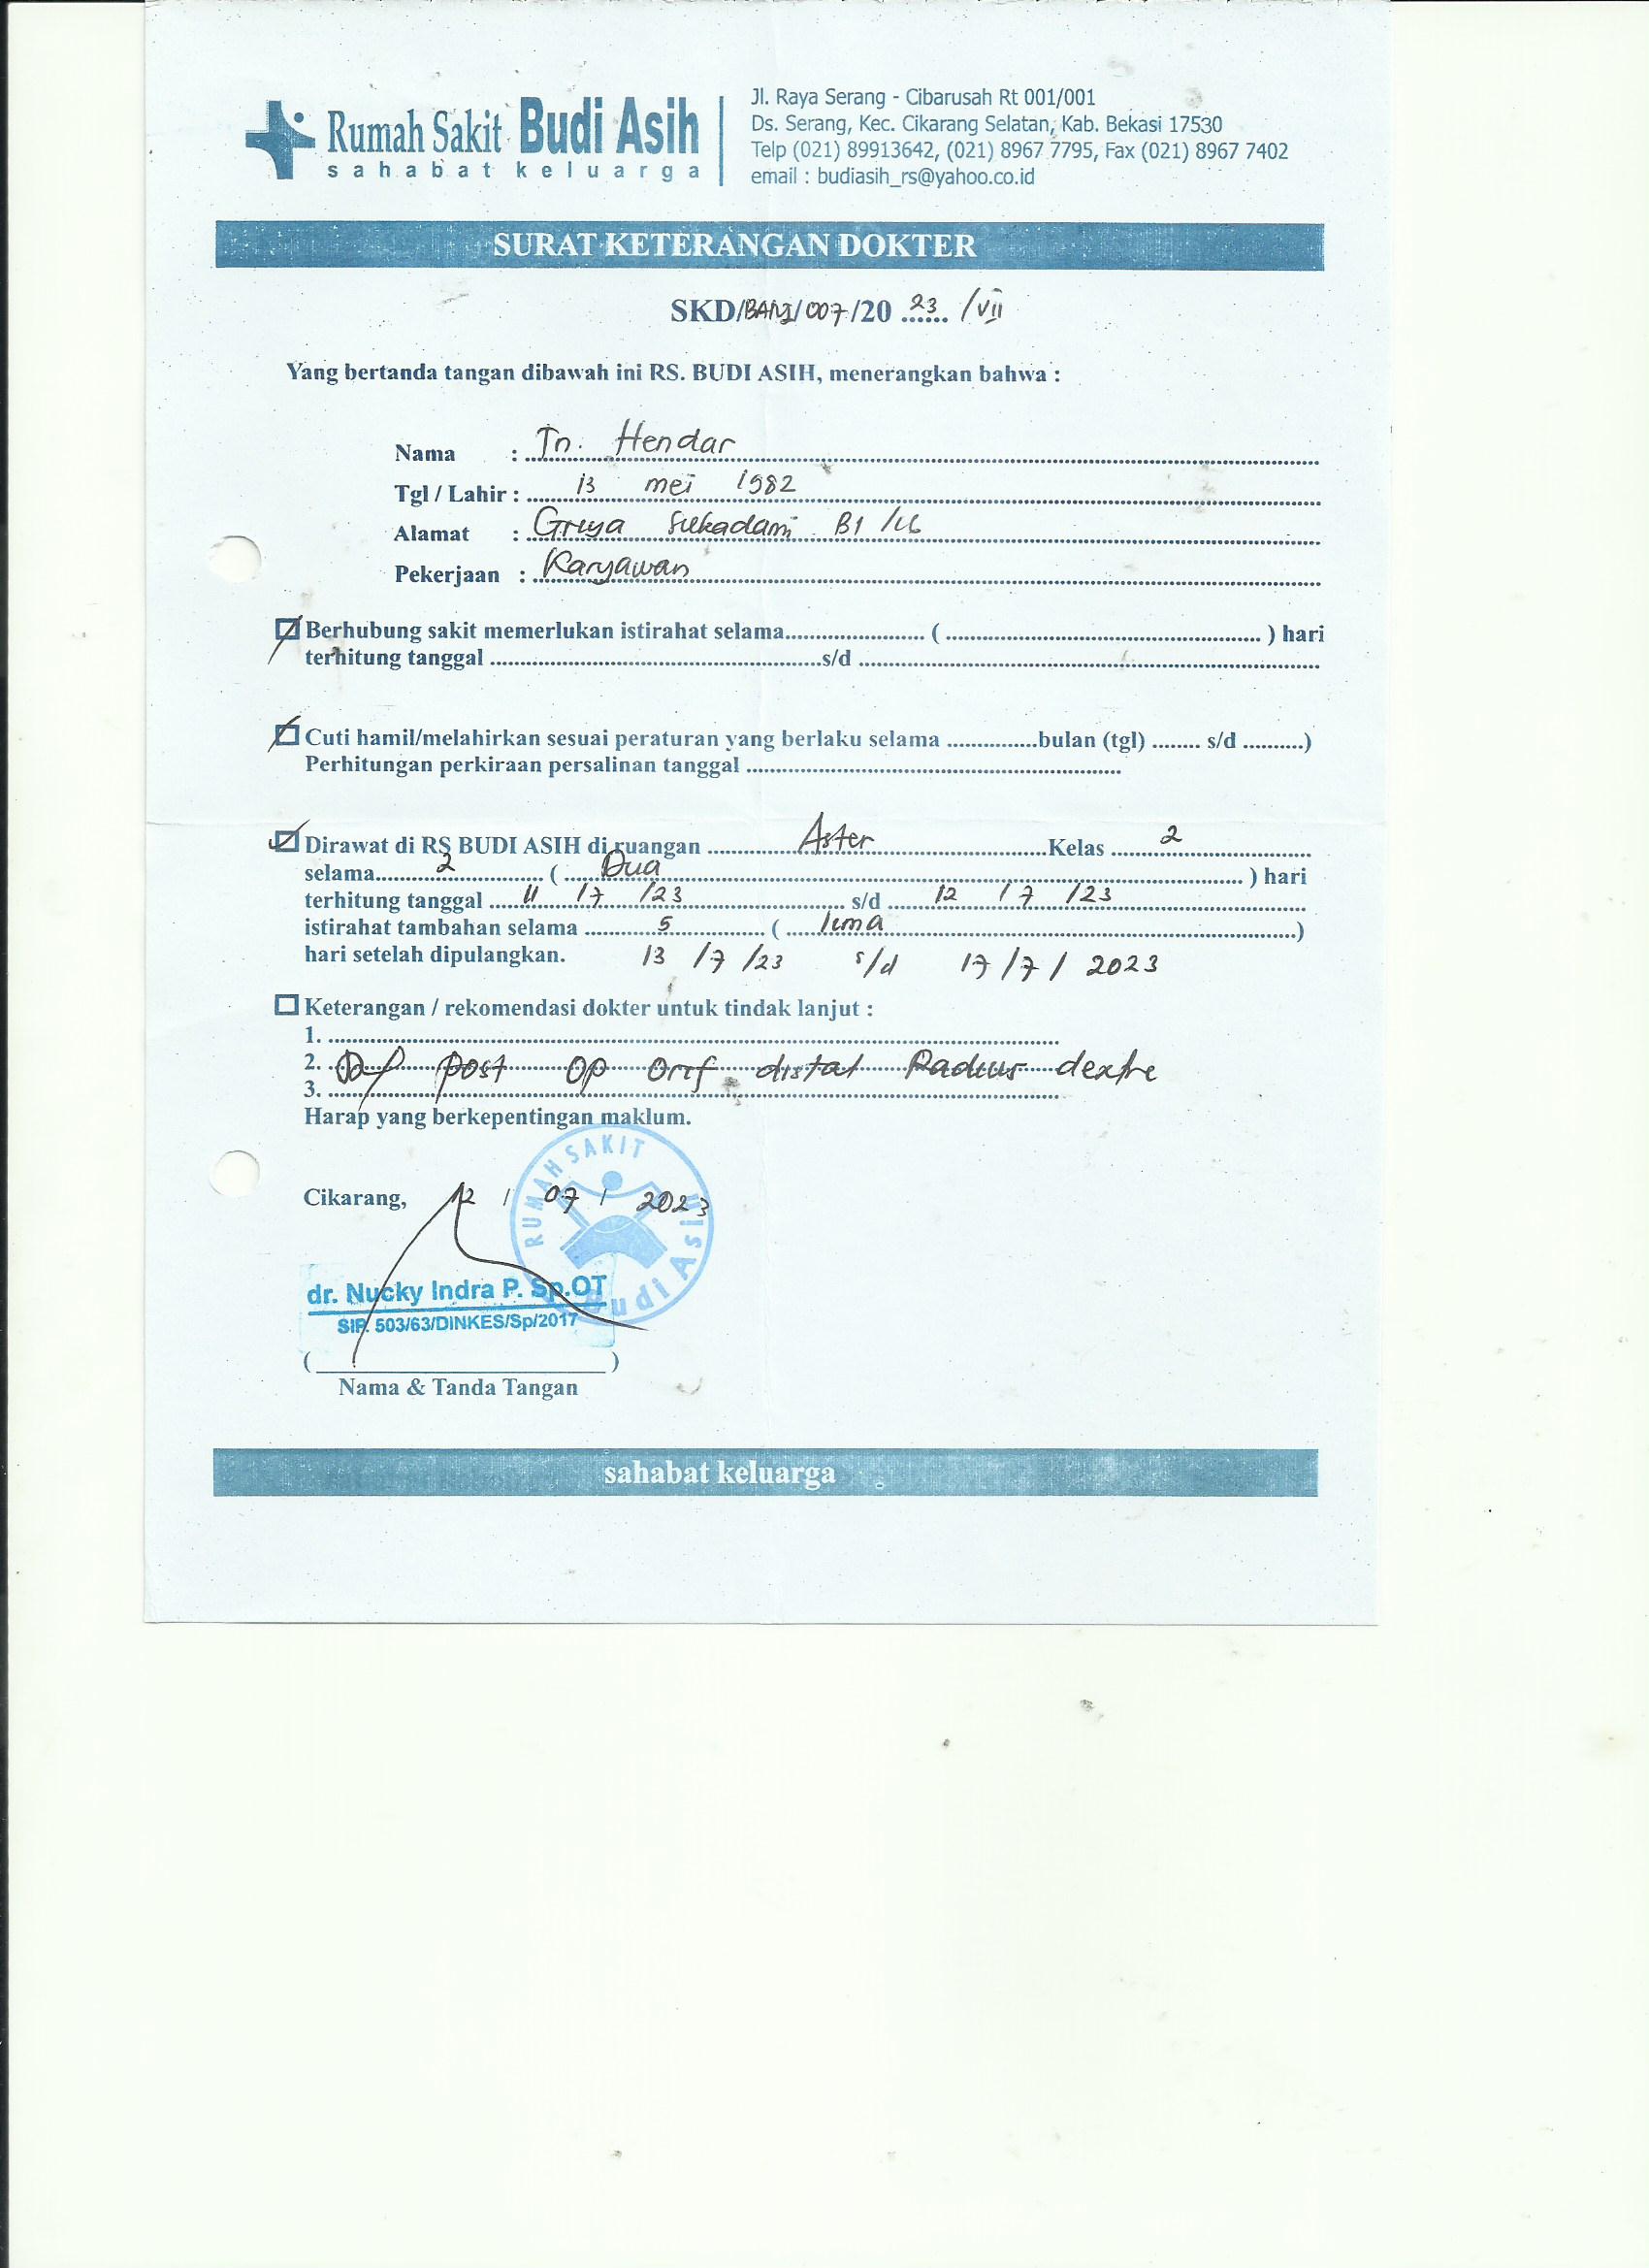 Rumah Sakit Budi Asih
sahabat keluarga
Jl. Raya Serang - Cibarusah Rt 001/001
Ds. Serang, Kec. Cikarang Selatan, Kab. Bekasi 17530
Telp (021) 89913642, (021) 8967 7795, Fax (021) 8967 7402
email : budiasih_rs@yahoo.co.id
SURAT KETERANGAN DOKTER
SKD/ /007/20 23 /VII
Yang bertanda tangan dibawah ini RS. BUDI ASIH, menerangkan bahwa :
Nama : Tn. Hendar
Tgl / Lahir : 13 mei 1982
Alamat : Griya Sukadami B1 /
Pekerjaan : Karyawan
Berhubung sakit memerlukan istirahat selama ( ) hari
terhitung tanggal s/d
Cuti hamil/melahirkan sesuai peraturan yang berlaku selama bulan (tgl) s/d )
Perhitungan perkiraan persalinan tanggal
Dirawat di RS BUDI ASIH di ruangan Aster Kelas 2
selama 2 ( Dua ) hari
terhitung tanggal 11 /7 /23 s/d 12 /7 /23
istirahat tambahan selama 5 ( lima )
hari setelah dipulangkan. 13 /7 /23 s/d 17/7/ 2023
Keterangan / rekomendasi dokter untuk tindak lanjut :
1.
2. post op orif distal Radius dextre
3.
Harap yang berkepentingan maklum.
RUMAH SAKIT
Budi Asih
Cikarang, 12 / 07 / 2023
dr. Nucky Indra P. Sp.OT
SIP. 503/63/DINKES/Sp/2017
( )
Nama & Tanda Tangan
sahabat keluarga